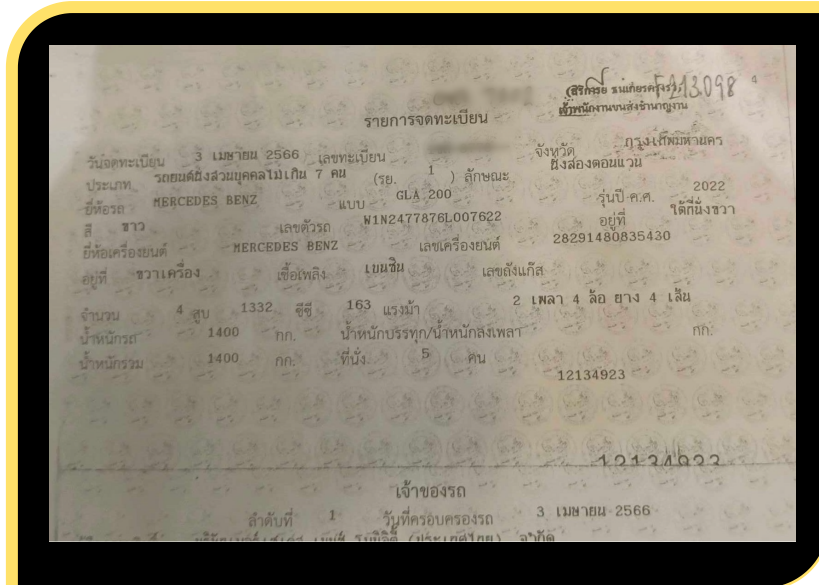 (สิริกัรย ธนเกียรติกูร) 5213098
เจ้าพนักงานขนส่งชำนาญงาน
รายการจดทะเบียน
วันจดทะเบียน 3 เมษายน 2566 เลขทะเบียน จังหวัด กรุงเทพมหานคร
ประเภท รถยนต์นั่งส่วนบุคคลไม่เกิน 7 คน (รย. 1 ) ลักษณะ นั่งสองตอนแวน
ยี่ห้อรถ MERCEDES BENZ แบบ GLA 200 รุ่นปี ค.ศ. 2022
สี ขาว เลขตัวรถ W1N2477876L007622 อยู่ที่ ใต้ที่นั่งขวา
ยี่ห้อเครื่องยนต์ MERCEDES BENZ เลขเครื่องยนต์ 28291480835430
อยู่ที่ ขวาเครื่อง เชื้อเพลิง เบนซิน เลขถังแก๊ส
จำนวน 4 สูบ 1332 ซีซี 163 แรงม้า 2 เพลา 4 ล้อ ยาง 4 เส้น
น้ำหนักรถ 1400 กก. น้ำหนักบรรทุก/น้ำหนักลงเพลา กก.
น้ำหนักรวม 1400 กก. ที่นั่ง 5 คน
12134923
12134923
เจ้าของรถ
ลำดับที่ 1 วันที่ครอบครองรถ 3 เมษายน 2566
(ประเทศไทย) จำกัด